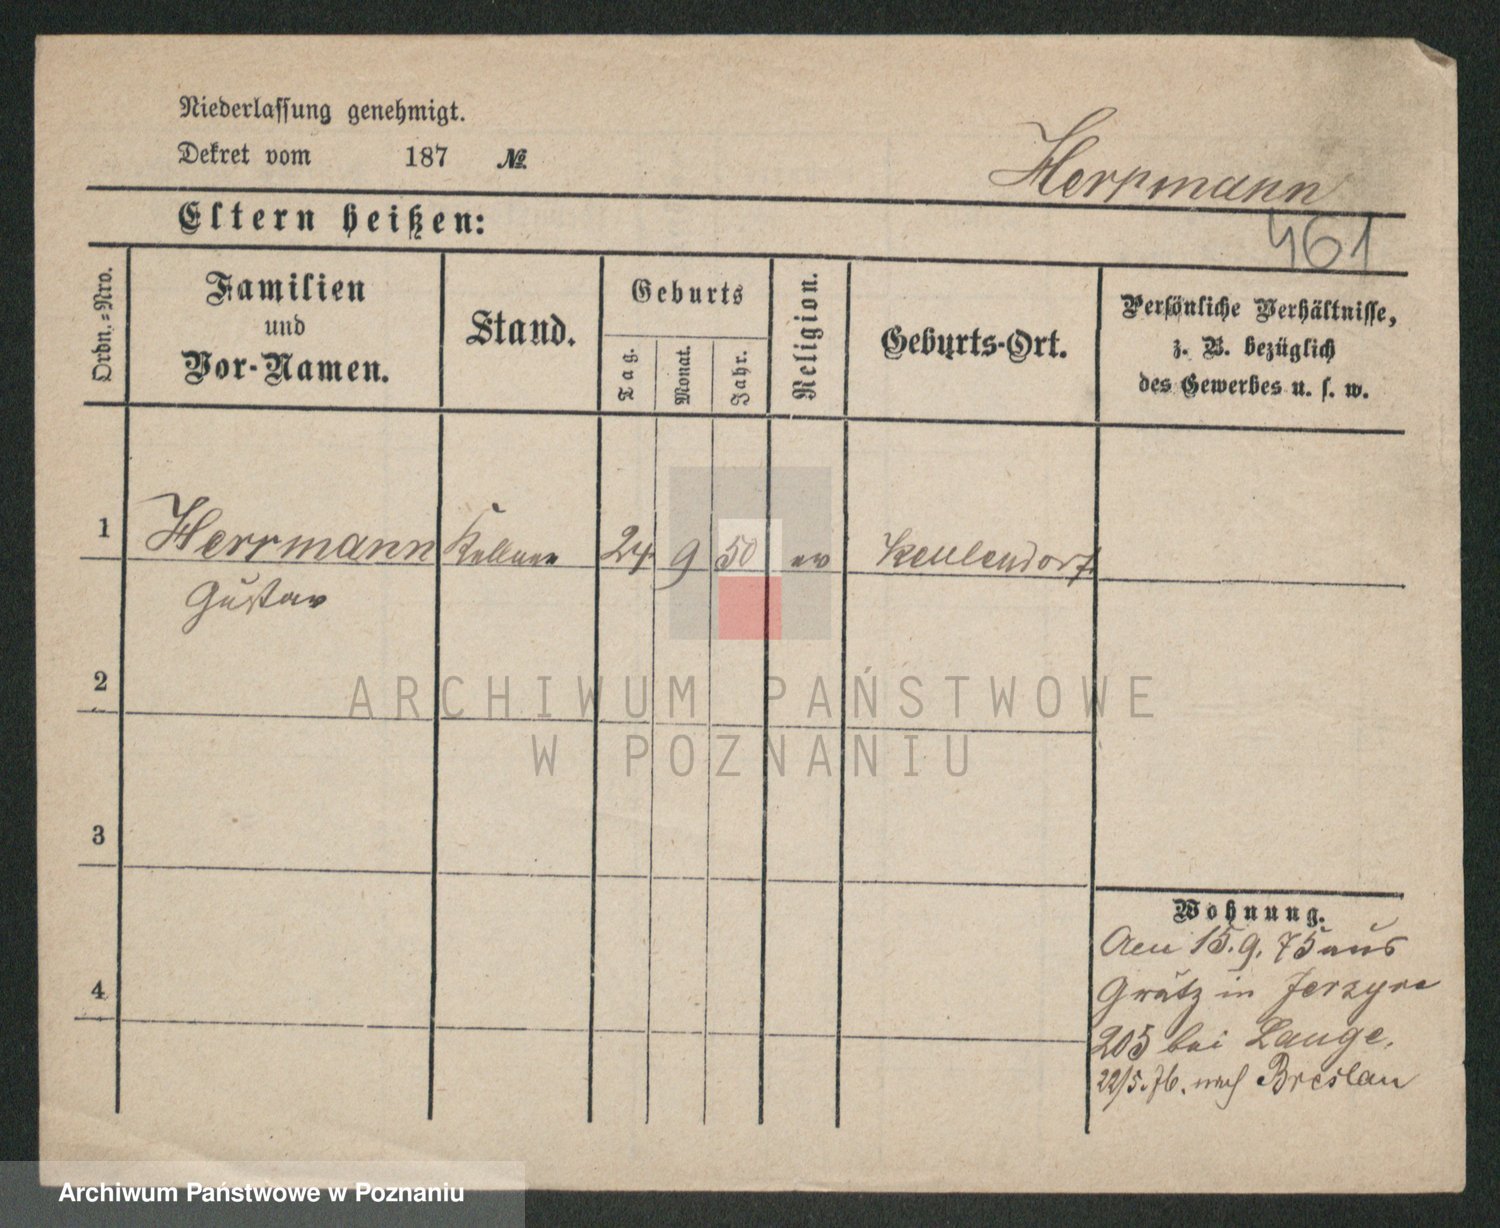 Niederlassung genehmigt.
Dekret vom 187 №
Herrmann
Eltern heißen:
461
Ordn.=Nro.
Familien
und
Vor-Namen.
Stand.
Geburts
Tag.
Monat.
Jahr.
Religion.
Geburts-Ort.
Persönliche Verhältnisse,
z. B. bezüglich
des Gewerbes u. s. w.
1 Herrmann Kellner 24 9 50 ev Keulendorf
Gustav
2
3
4
Wohnung.
Den 15.9.75 aus
Grätz in Jerzyce
205 bei Lange.
22/5.76. nach Breslau
ARCHIWUM PAŃSTWOWE
W POZNANIU
Archiwum Państwowe w Poznaniu